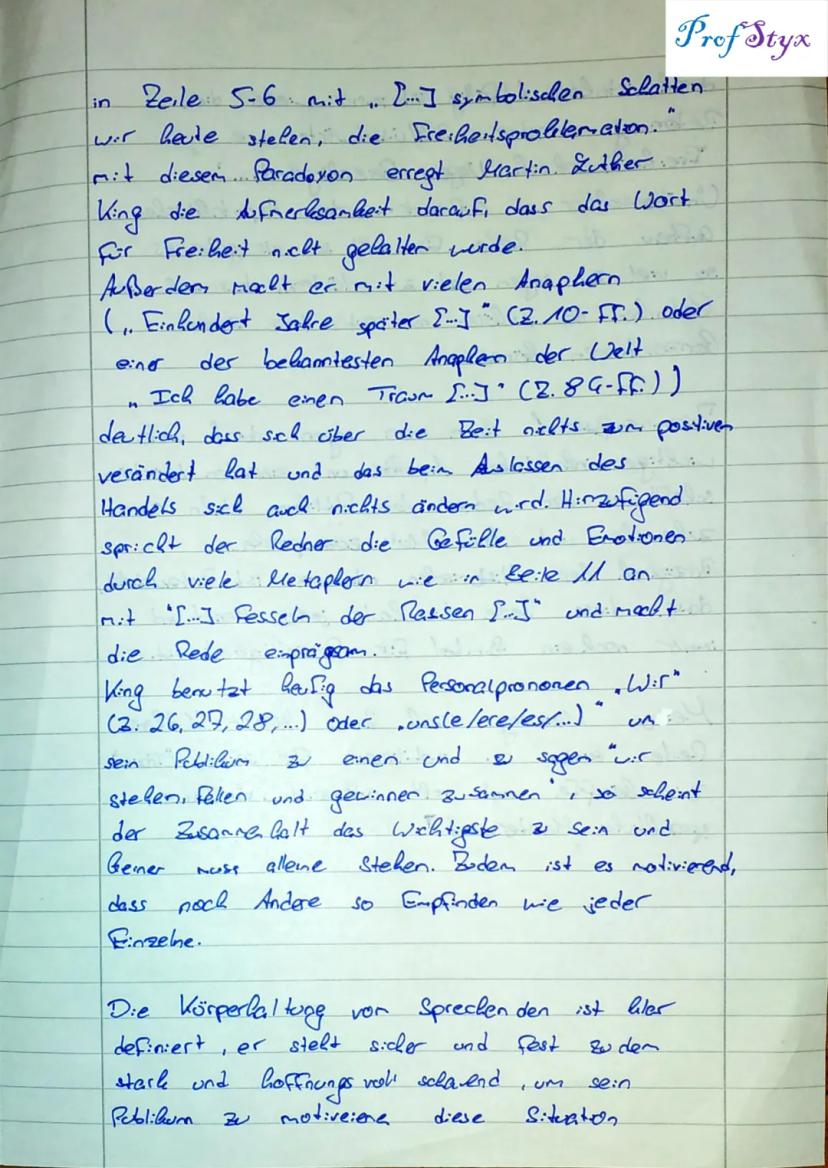 Prof Styx
in Zeile 5-6 mit „ [...] symbolischen Schatten
wir heute stehen, die Freiheitsproklamation."
mit diesem Paradoxon erregt Martin Luther
King die Aufmerksamkeit darauf, dass das Wort
für Freiheit nicht gehalten wurde.
Außerdem macht er mit vielen Anaphern
(„ Einhundert Jahre später [...] " (Z. 10- ff.) oder
einer der bekanntesten Anaphern der Welt
„ Ich habe einen Traum [...] " (Z. 84-ff.))
deutlich, dass sich über die Zeit nichts zum positiven
verändert hat und das beim Auslassen des
Handels sich auch nichts ändern wird. Hinzufügend
spricht der Redner die Gefühle und Emotionen
durch viele Metaphern wie in Zeile 11 an
mit "[...] Fesseln der Rassen [...]" und macht
die Rede einprägsam.
King benutzt häufig das Personalpronomen „Wir"
(Z. 26, 27, 28, ...) oder „uns(e/ere/es/...)" um
sein Publikum zu einen und zu sagen "wir
stehen, fallen und gewinnen zusammen", so scheint
der Zusammenhalt das Wichtigste zu sein und
keiner muss alleine stehen. Zudem ist es motivierend,
dass noch Andere so Empfinden wie jeder
Einzelne.
Die Körperhaltung vom Sprechenden ist klar
definiert, er steht sicher und fest zudem
stark und hoffnungsvoll schauend, um sein
Publikum zu diese Situation